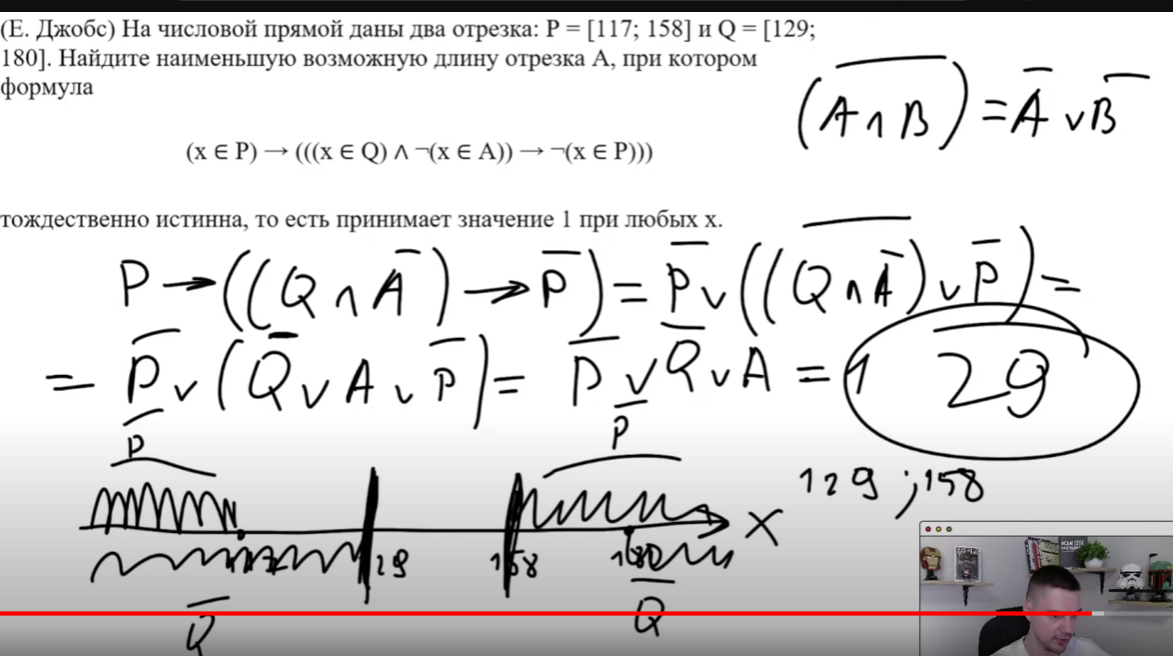 (Е. Джобс) На числовой прямой даны два отрезка: P = [117; 158] и Q = [129;
180]. Найдите наименьшую возможную длину отрезка A, при котором
формула
(x ∈ P) → (((x ∈ Q) ∧ ¬(x ∈ A)) → ¬(x ∈ P)))
тождественно истинна, то есть принимает значение 1 при любых x.
(A̅ ̅∧̅ ̅B̅) = A̅ ∨ B̅
P → ((Q ∧ A̅) → P̅) = P̅ ∨ ((Q̅ ̅∧̅ ̅A̅̅) ∨ P̅) =
= P̅ ∨ (Q̅ ∨ A ∨ P̅) = P̅ ∨ Q̅ ∨ A = 1
29
P̅ P̅
129 ; 158
X
29 158 180
Q̅ Q̅